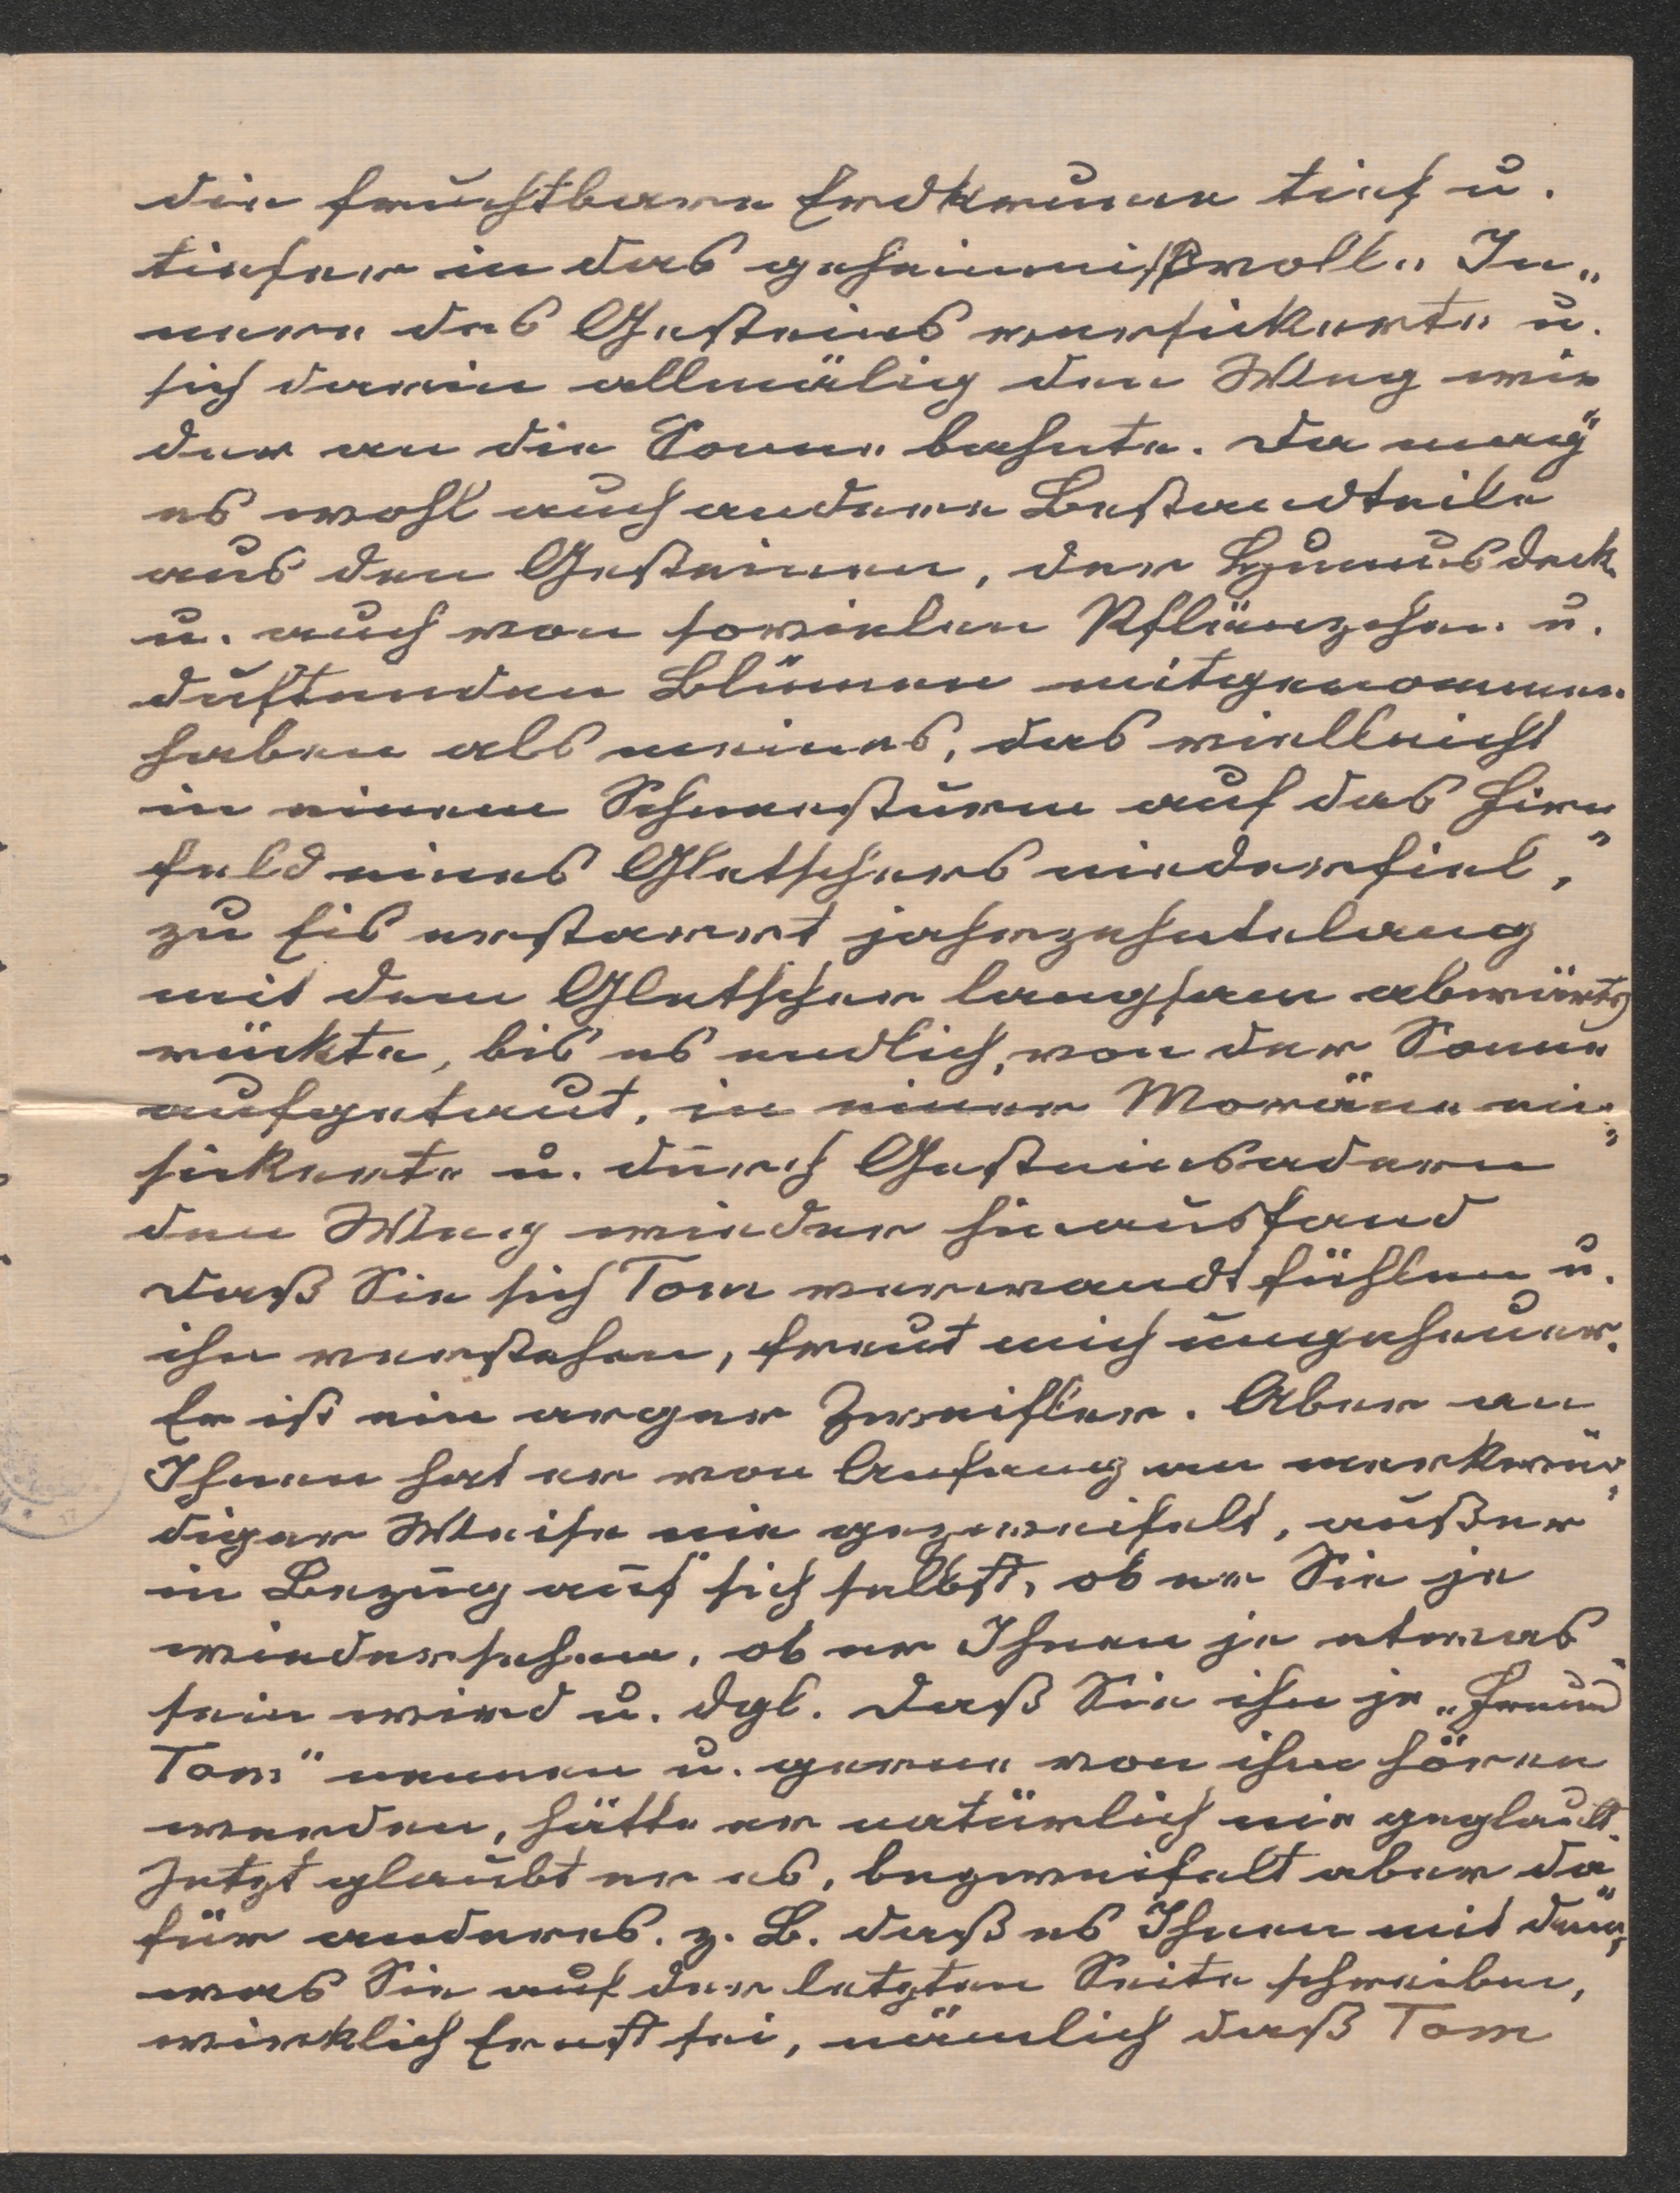 die fruchtbare Erdkrume tief u.
tiefer in das geheimnißvolle In„
nere des Gesteins versickerte u.
sich darin allmälig den Weg wie
der an die Sonne bahnte. Da mag
es wohl auch andere Bestandteile
aus den Gesteinen, der Humusdeck
u. auch von sovielen Pflänzchen u.
duftenden Blumen mitgenommen
haben als meines, das vielleicht
in einem Schneesturm auf das Firn„
feld eines Gletschers niederfiel,
zu Eis erstarrt jahrzehntelang
mit dem Gletscher langsam abwärts
rückte, bis es endlich, von der Sonne
aufgetaut, in einer Moräne ein„
sickerte u. durch Gesteinsadern
den Weg wieder hinausfand
Daß Sie sich Tom verwandt fühlen u.
ihn verstehen, freut mich ungeheuer.
Er ist ein arger Zweifler. Aber an
Ihnen hat er von Anfang an merkwür„
diger Weise nie gezweifelt, außer
in Bezug auf sich selbst, ob er Sie je
wiedersehen, ob er Ihnen je etwas
sein wird u. dgl. Daß Sie ihn je „Freund
Tom" nennen u. gerne von ihm hören
werden, hätte er natürlich nie geglaubt.
Jetzt glaubt er es, bezweifelt aber da„
für anderes. z. B. daß es Ihnen mit dem,
was Sie auf der letzten Seite schreiben,
wirklich Ernst sei, nämlich daß Tom